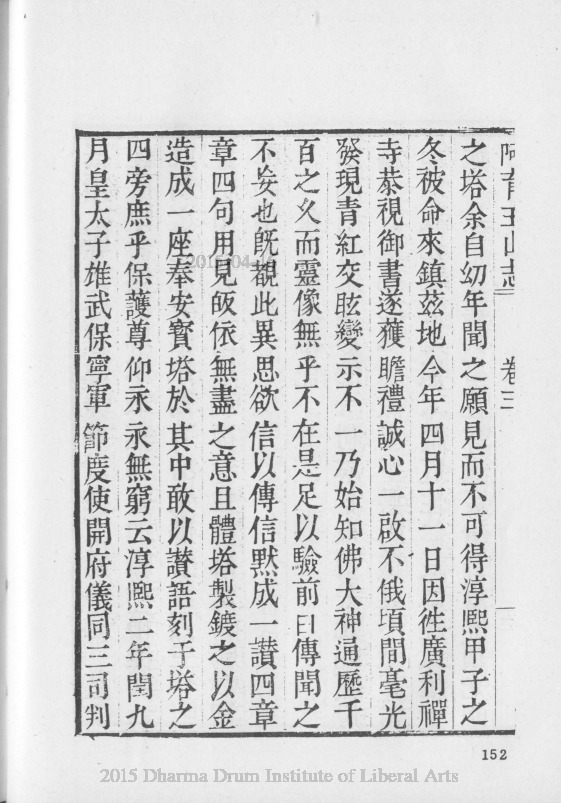 阿育王山志 卷三
之塔余自幼年聞之願見而不可得淳熙甲子之
冬被命來鎮茲地今年四月十一日因徃廣利禪
寺恭視御書遂獲瞻禮誠心一啟不俄頃間毫光
發現青紅交眩變示不一乃始知佛大神通歷千
百之久而靈像無乎不在是足以驗前日傳聞之
不妄也旣覩此異思欲信以傳信默成一讃四章
章四句用見皈依無盡之意且體塔製鍍之以金
造成一座奉安寳塔於其中敢以讃語刻于塔之
四旁庶乎保護尊仰永永無窮云淳熙二年閏九
月皇太子雄武保寧軍節度使開府儀同三司判
152
2015 Dharma Drum Institute of Liberal Arts